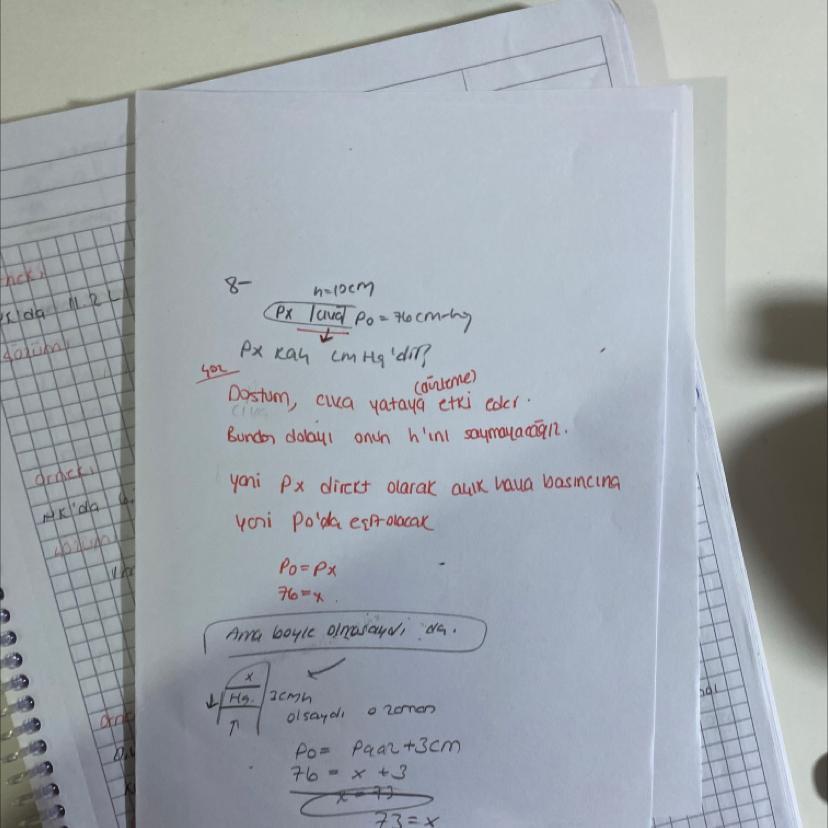 8-
h=10cm
Px cıva P0=76cm-hg
Px kaç cm Hg'dır?
çöz
Dostum, cıva yataya (düzleme) etki eder.
Bundan dolayı onun h'ını saymayacağız.
yani Px direkt olarak açık hava basıncına
yani P0'da eşit olacak
P0=Px
76=x
Ama böyle olmasaydı da.
x
Hg. 3cmh
olsaydı o zaman
P0= Pgaz+3cm
76 = x + 3
x=73
73=x
örnek:
NK'da
çözüm: